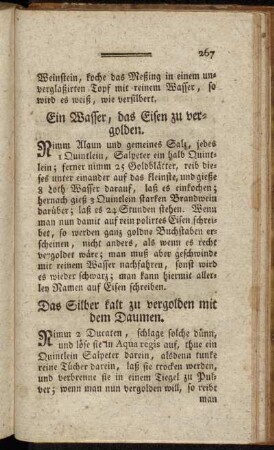 267
Weinstein, koche das Meßing in einem un-
verglaßirten Topf mit reinem Wasser, so
wird es weiß, wie versilbert.
Ein Wasser, das Eisen zu ver-
golden.
Nimm Alaun und gemeines Salz, jedes
1 Quintlein, Salpeter ein halb Quint-
lein; ferner nimm 25 Goldblätter, reib die-
ses unter einander auf das kleinste, und gieße
8 Loth Wasser darauf, laß es einkochen;
hernach gieß 3 Quintlein starken Brandwein
darüber; laß es 24 Stunden stehen. Wenn
man nun damit auf rein polirtes Eisen schrei-
bet, so werden ganz goldne Buchstaben er-
scheinen, nicht anders, als wenn es recht
vergoldet wäre; man muß aber geschwinde
mit reinem Wasser nachfahren, sonst wird
es wieder schwarz; man kann hiermit aller-
ley Namen auf Eisen schreiben.
Das Silber kalt zu vergolden mit
dem Daumen.
Nimm 2 Ducaten, schlage solche dünn,
und löse sie in Aqua regis auf, thue ein
Quintlein Salpeter darein, alsdenn tunke
reine Tücher darein, laß sie trocken werden,
und verbrenne sie in einem Tiegel zu Pul-
ver; wenn man nun vergolden will, so reibe
man